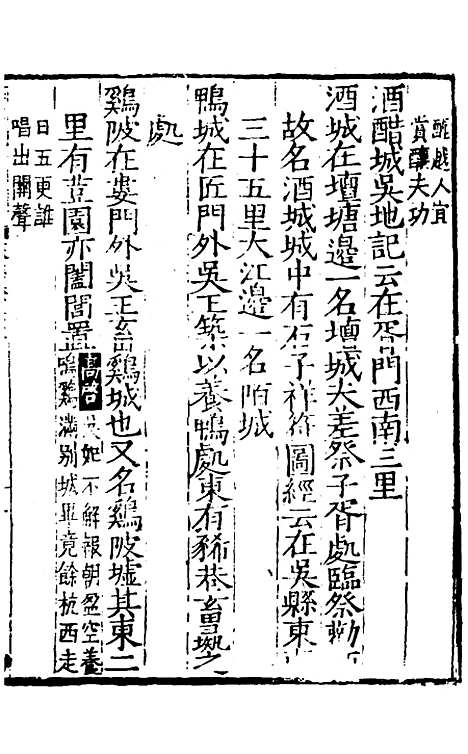 醯越人宜
賞釀夫功
酒醋城吳地記云在胥門西南三里
酒城在壇塘邊一名壇城夫差祭子胥處臨祭勸
故名酒城城中有石子祥符圖經云在吳縣東
三十五里大江邊一名陌城
鴨城在匠門外吳王築以養鴨處東有豨巷畜彘之
處
鷄陂在婁門外吳王畜鷄城也又名鷄陂墟其東二
里有荳園亦闔閭置高啓吳如不解報朝盈空養
鳴鷄滿別城畢竟餘杭西走
日五更誰
唱出關聲